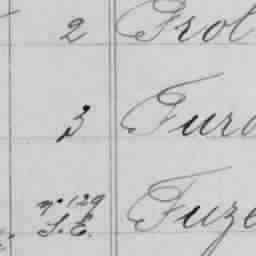 2 Frol
3 Furo
nº 129
S. E. Fuze